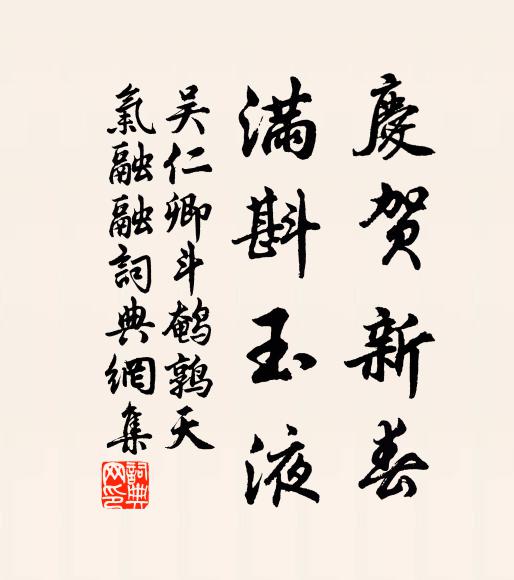 慶賀新春
滿斟玉液
吳仁卿斗鵪鶉天
氣融融詞典網集
詞典网印